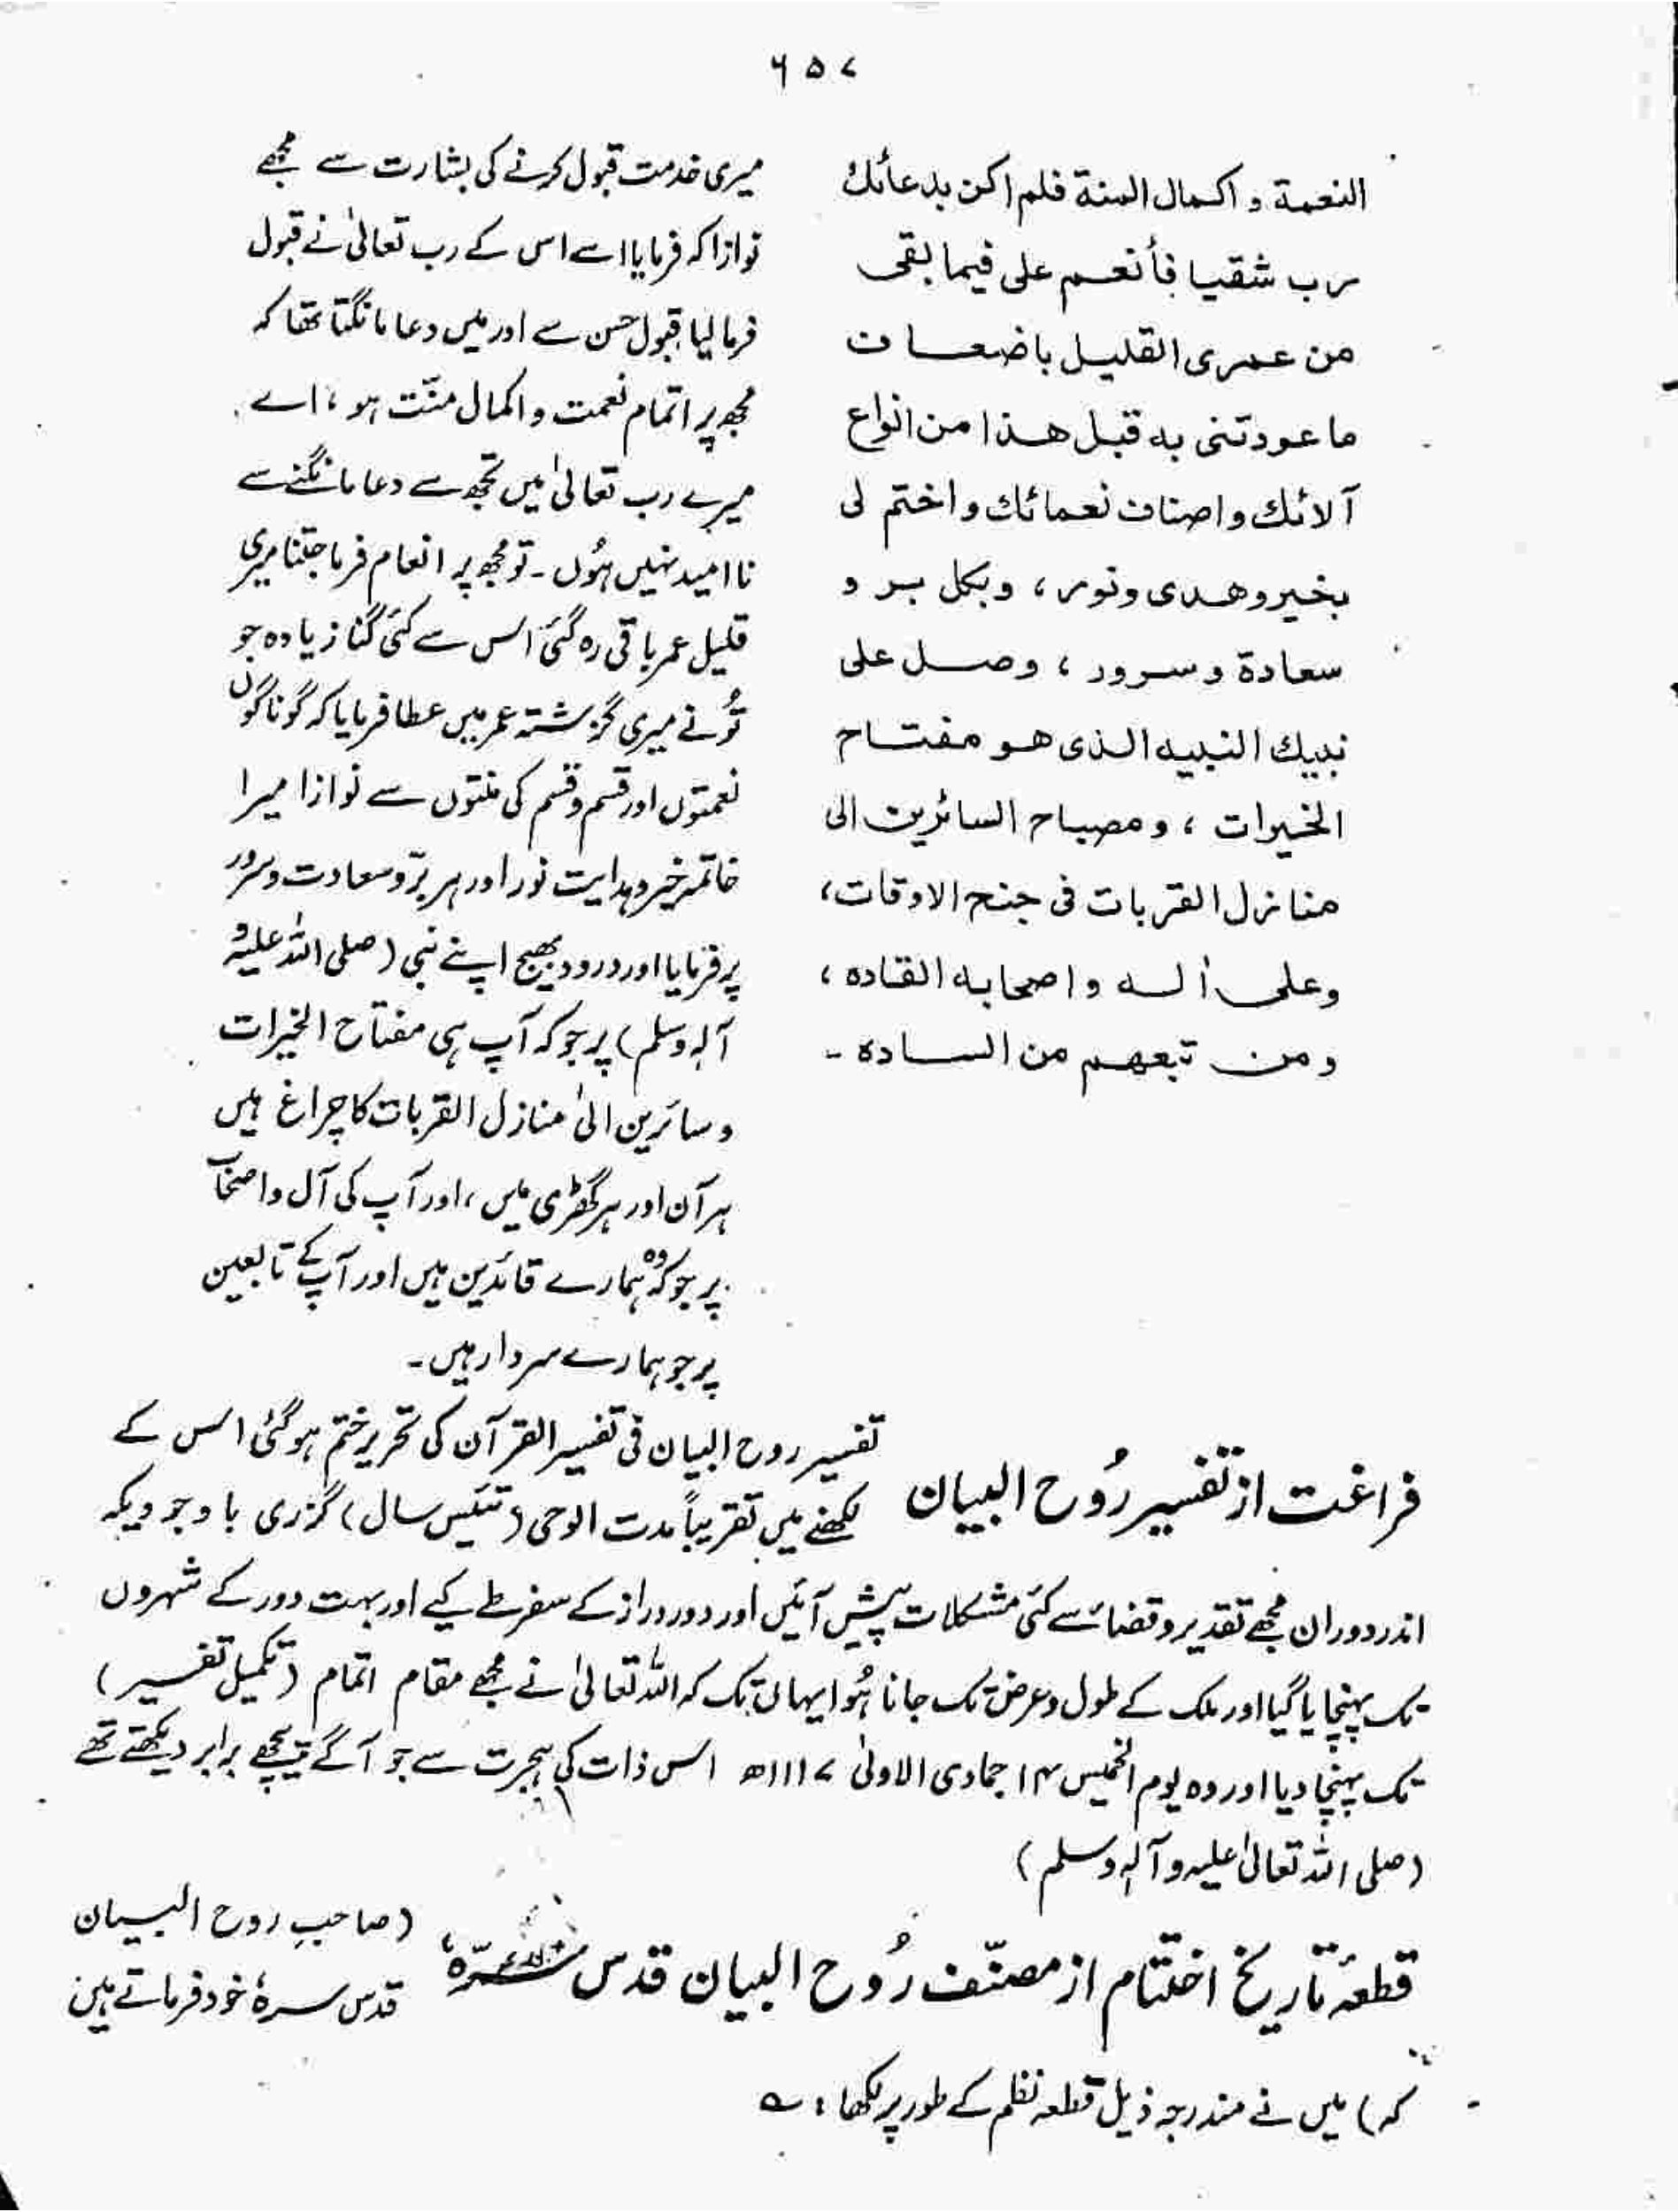 ۶۵۷
النعمة و اكمال المنة فلم اكن بدعائك
رب شقيا فأنعم على فيما بقى
من عمرى القليل باضعاف
ما عودتنى به قبل هذا من انواع
آلائك و اصناف نعمائك و اختم لى
بخير و هدى و نور ، و بكل بر و
سعادة و سرور ، و صل على
نبيك النبيه الذى هو مفتاح
الخيرات ، و مصباح السائرين الى
منازل القربات فى جنح الاوقات،
وعلى أله و اصحابه القاده ،
و من تبعهم من الساده ۔
میری خدمت قبول کرنے کی بشارت سے مجھے
نوازا کہ فرمایا اسے اس کے رب تعالیٰ نے قبول
فرما لیا قبول حسن سے اور میں دعا مانگتا تھا کہ
مجھ پر اتمام نعمت و اکمال منّت ہو ، اے
میرے رب تعالیٰ میں تجھ سے دعا مانگنے سے
نا امید نہیں ہُوں ۔ تو مجھ پر انعام فرما جتنا میری
قلیل عمر باقی رہ گئی اس سے کئی گنا زیادہ جو
تُو نے میری گزشتہ عمر میں عطا فرمایا کہ گوناگوں
نعمتوں اور قسم و قسم کی منتوں سے نوازا میرا
خاتمہ خیر و ہدایت نور اور ہر برّ و سعادت و سرور
پر فرمایا اور درود بھیج اپنے نبی (صلی اللہ علیہ و
آلہٖ وسلم) پر جو کہ آپ ہی مفتاح الخیرات
و سائرین الیٰ منازل القربات کا چراغ ہیں
ہر آن اور ہر گھڑی میں ، اور آپ کی آل و اصحاب
پر جو کہ وہ ہمارے قائدین ہیں اور آپ کے تابعین
پر جو ہمارے سردار ہیں ۔
فراغت از تفسیر رُوح البیان
تفسیر روح البیان فی تفسیر القرآن کی تحریر ختم ہو گئی اس کے
لکھنے میں تقریباً مدت الوحی (تئیس سال) گزری با وجودیکہ
اندر دوران مجھے تقدیر و قضاء سے کئی مشکلات پیش آئیں اور دور دراز کے سفر طے کیے اور بہت دور کے شہروں
تک پہنچایا گیا اور ملک کے طول و عرض تک جانا ہُوا یہاں تک کہ اللہ تعالیٰ نے مجھے مقام اتمام (تکمیل تفسیر)
تک پہنچا دیا اور وہ یوم الخمیس ۱۴ جمادی الاولیٰ ۱۱۱۷ھ اس ذات کی ہجرت سے جو آگے پیچھے برابر دیکھتے تھے
(صلی اللہ تعالیٰ علیہ و آلہٖ وسلم)
قطعۂ تاریخ اختتام از مصنّف رُوح البیان قدس سرّہٗ
(صاحبِ روح البیان
قدس سرہٗ خود فرماتے ہیں
کہ) میں نے مندرجہ ذیل قطعہ نظم کے طور پر لکھا : ے